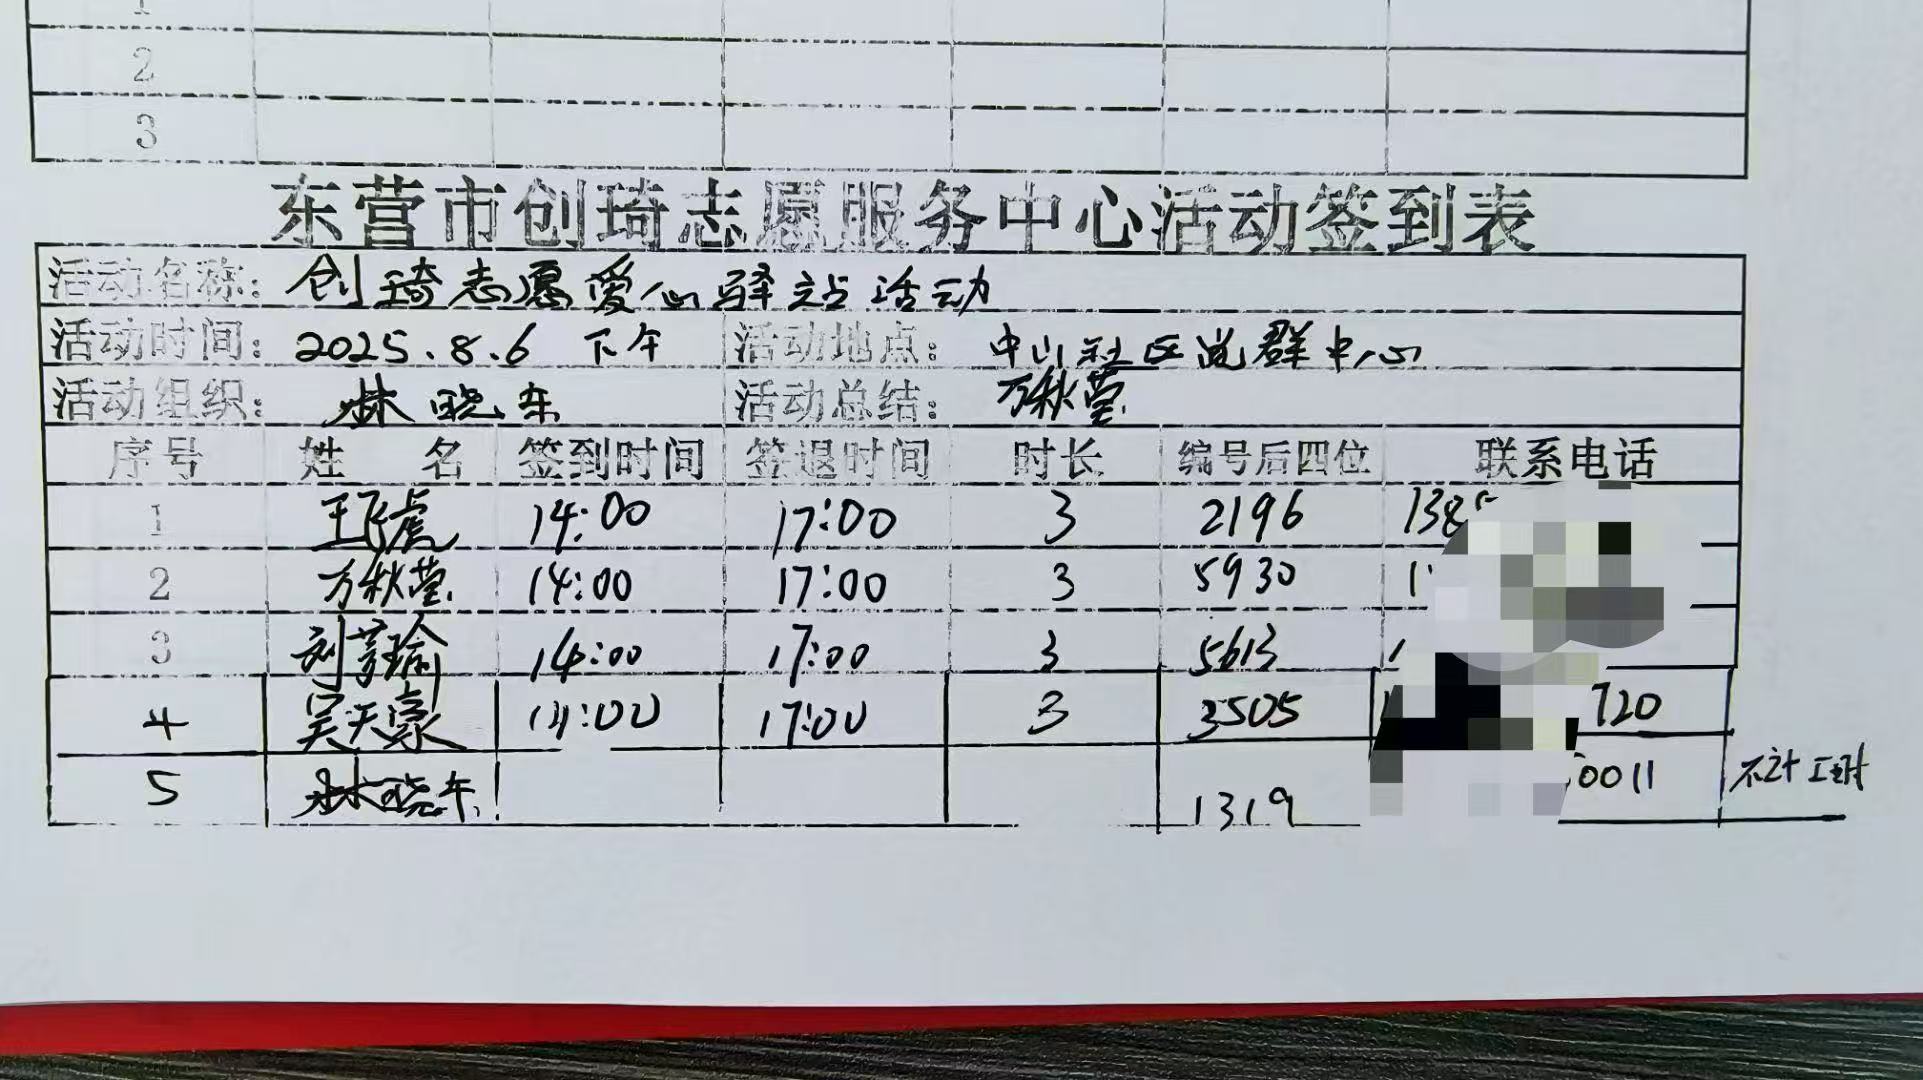 1
2
3
东营市创琦志愿服务中心活动签到表
活动名称: 创琦志愿爱心驿站活动
活动时间: 2025.8.6 下午 活动地点: 中山社区党群中心
活动组织: 林晓东 活动总结: 万秋莹
序号 姓 名 签到时间 签退时间 时长 编号后四位 联系电话
1 王飞虎 14:00 17:00 3 2196 138
2 万秋莹 14:00 17:00 3 5930 1
3 刘 瑜 14:00 17:00 3 5613 1
4 吴天豪 14:00 17:00 3 3505 1 720
5 林晓东 1319 0011 不计工时